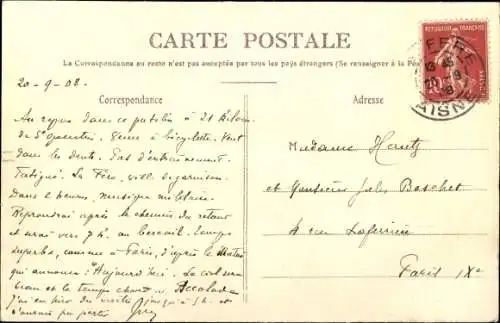 CARTE POSTALE
La Correspondance au recto n'est pas acceptée par tous les pays étrangers (Se renseigner à la Poste)
Correspondance
Adresse
RÉPUBLIQUE FRANÇAISE
FÈRE
AISNE
20-9-08.
Au repos dans ce patelin à 21 kilom.
de St Quentin. 8ème à bicyclette. Vent
dans les dents. Pas d'entraînement.
Fatigué. La Fère, ville de garnison.
Dans heures, musique militaire.
Reprendrai après le chemin du retour
et serai vers 7 h. au Temps
superbe, comme à Paris, d'après le Matin
qui annonce: "Aujourd'hui. La
et le temps chaud". Accolade
J'ai jusqu'à 5 h. et
Madame Hautz
et Monsieur Jules Boschet
4 rue Laferrière
Paris IXe